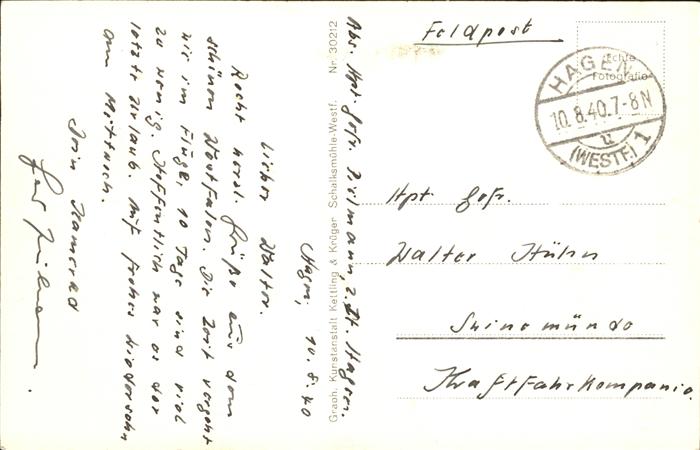 Feldpost
Echte
Fotografie
HAGEN
10.8.40.7-8N
u
(WESTF.) 1
Hpt. Gefr.
Walter Hühn
Swinemünde
Kraftfahrkompanie.
Abs. Hpt. Gefr. Zeilmann, z. Zt. Hagen.
Graph. Kunstanstalt Kettling & Krüger Schalksmühle-Westf. Nr. 30212
Hagen, 10.8.40
Lieber Walter.
Recht herzl. Grüße aus dem
schönen Westfalen. Die Zeit vergeht
wie im Fluge, 10 Tage sind viel
zu wenig. Hoffentlich war es der
letzte Urlaub. Auf frohes Wiedersehn
am Mittwoch.
Dein Kamerad